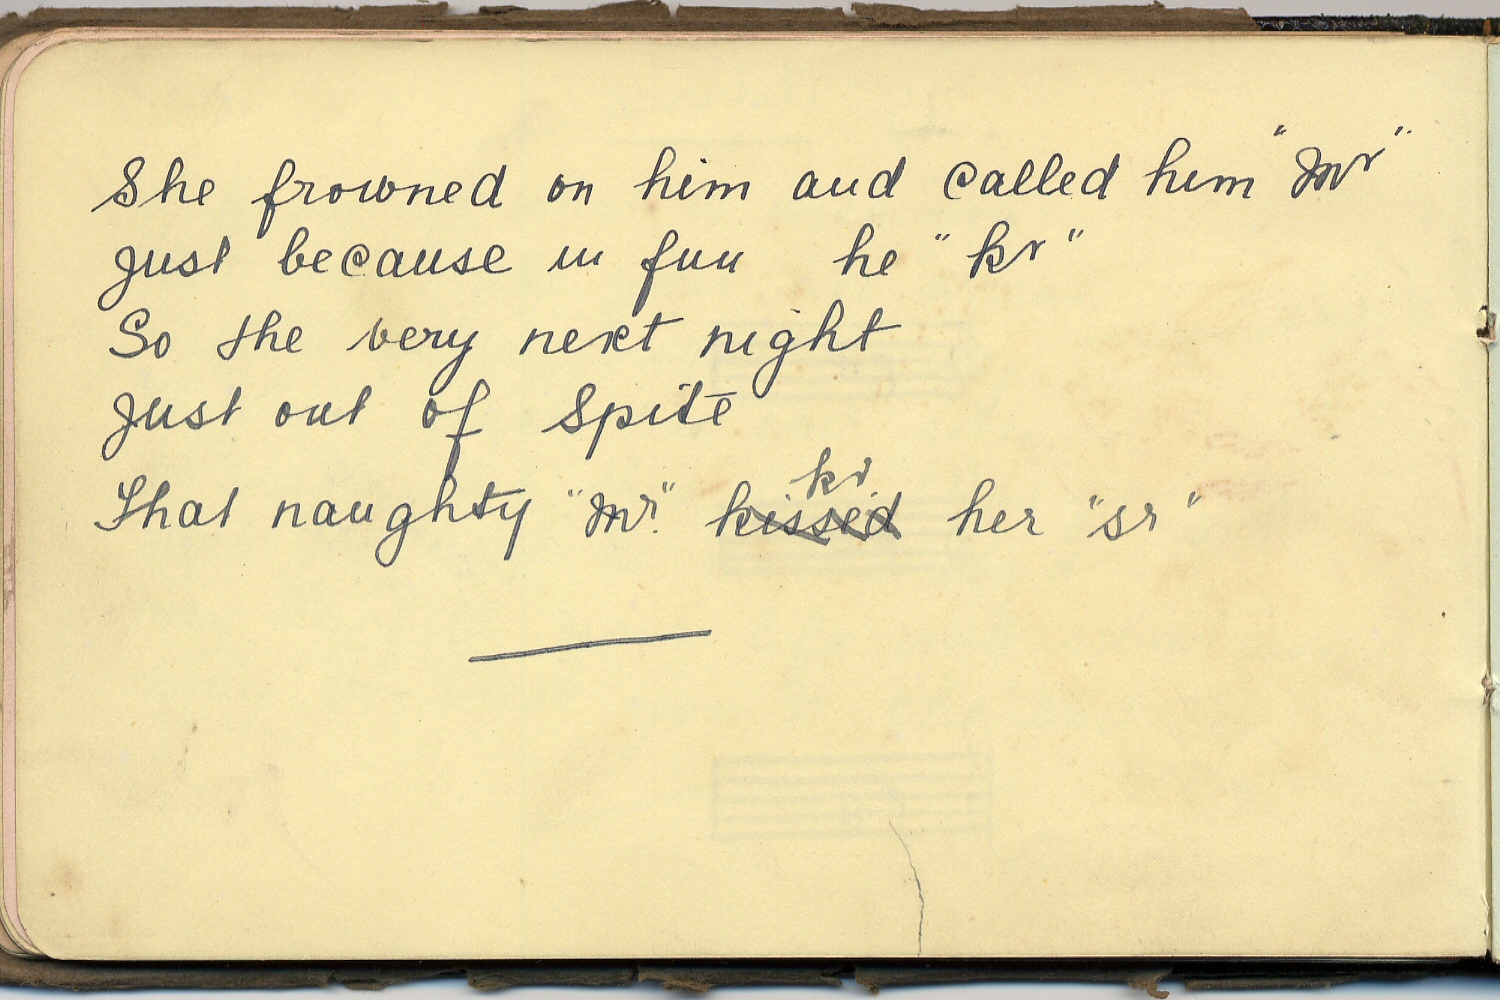 She frowned on him and called him "Mr"
Just because in fun he "kr"
So the very next night
Just out of Spite
That naughty "Mr." kissed kr her "sr"